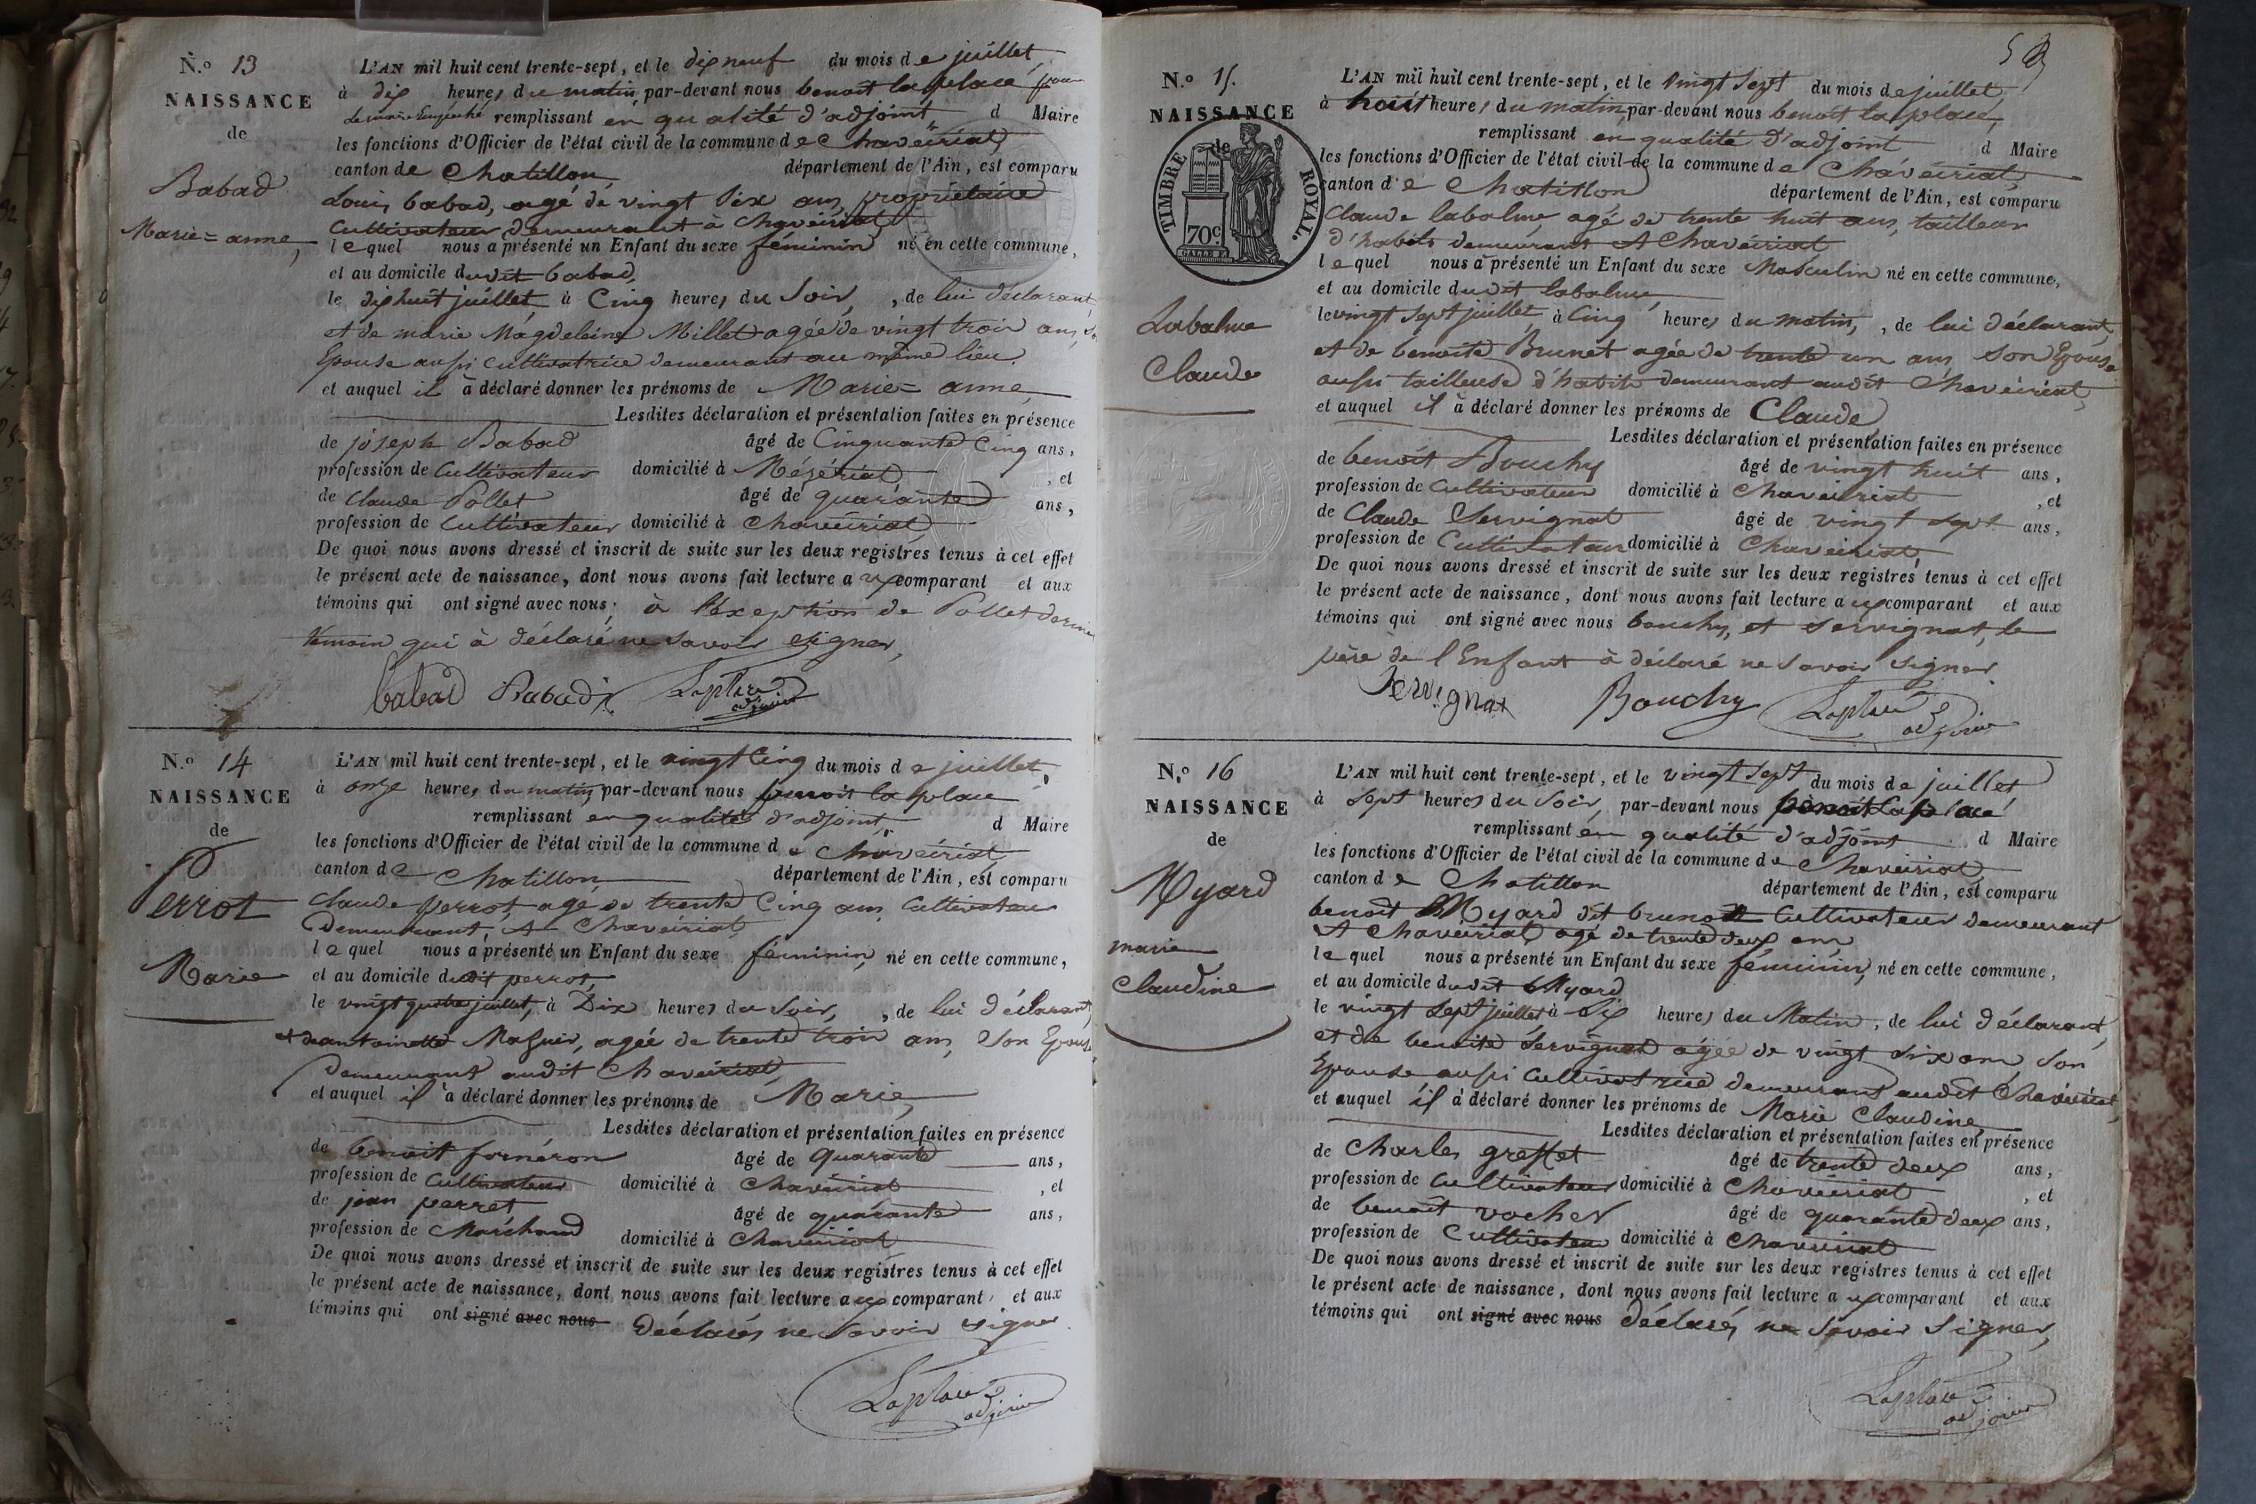 N.° 13
NAISSANCE
de
Babad
Marie = anne,
L'AN mil huit cent trente-sept, et le dix neuf du mois de juillet,
à dix heures du matin par-devant nous benoit laplace pour
le maire Empeché remplissant en qualité d'adjoint d Maire
les fonctions d'Officier de l'état civil de la commune de Chaveiriat
canton de Chatillon département de l'Ain, est comparu
Louis babad, agé de vingt six ans, propriétaire
Cultivateur demeurant à chaveiriat
lequel nous a présenté un Enfant du sexe féminin né en cette commune,
et au domicile dudit babad,
le dix huit juillet à Cinq heures du Soir, , de lui déclarant,
et de marie Magdeleine Millet agée de vingt trois ans, so
Epouse aussi cultivatrice demeurant au même lieu
et auquel il à déclaré donner les prénoms de Marie = anne
Lesdites déclaration et présentation faites en présence
de joseph Babad âgé de Cinquante Cinq ans,
profession de Cultivateur domicilié à Mézériat , et
de Claude Pollet âgé de quarante ans,
profession de Cultivateur domicilié à Chaveiriat
De quoi nous avons dressé et inscrit de suite sur les deux registres tenus à cet effet
le présent acte de naissance, dont nous avons fait lecture a ux comparant et aux
témoins qui ont signé avec nous; à l'éxception de Pollet dernier
témoin qui à déclaré ne savoir signer,
babad Babad Laplace
adjoint
N.° 14
NAISSANCE
de
Perrot
Marie
L'AN mil huit cent trente-sept, et le vingt Cinq du mois de juillet,
à onze heures du matin par-devant nous benoit la place
remplissant en qualité d'adjoint, d Maire
les fonctions d'Officier de l'état civil de la commune de Chaveiriat
canton de Chatillon département de l'Ain, est comparu
Claude perrot, agé de trente Cinq ans, Cultivateur
Demeurant, A Chaveiriat
lequel nous a présenté un Enfant du sexe féminin, né en cette commune,
et au domicile dudit perrot,
le vingt quatre juillet, à Dix heures du Soir, , de lui déclarant,
et de antoinette Maguin, agée de trente trois ans, Son Epouse
Demeurant audit Chaveiriat,
et auquel il à déclaré donner les prénoms de Marie,
Lesdites déclaration et présentation faites en présence
de benoit fornéron âgé de quarante ans,
profession de Cultivateur domicilié à Chaveiriat , et
de jean perret âgé de quarante ans,
profession de Marchand domicilié à Chaveiriat
De quoi nous avons dressé et inscrit de suite sur les deux registres tenus à cet effet
le présent acte de naissance, dont nous avons fait lecture aux comparant et aux
témoins qui ont signé avec nous Déclarés ne savoir signer
Laplace
adjoint
58
N.° 15.
NAISSANCE
de
TIMBRE ROYAL.
70c.
GALLE F.
Labalme
Claude
L'AN mil huit cent trente-sept, et le vingt Sept du mois de juillet,
à huit heures du matin par-devant nous benoit la place,
remplissant en qualité d'adjoint d Maire
les fonctions d'Officier de l'état civil de la commune de Chaveiriat,
canton de Chatillon département de l'Ain, est comparu
Claude labalme agé de trente huit ans, tailleur
d'habits demeurant A Chaveiriat
lequel nous à présenté un Enfant du sexe Masculin né en cette commune,
et au domicile dudit labalme
le vingt Sept juillet à Cinq heures du matin, , de lui déclarant,
et de benoite Brunet agée de trente un ans, Son Epouse
aussi tailleuse d'habits demeurant audit Chaveiriat,
et auquel il à déclaré donner les prénoms de Claude,
Lesdites déclaration et présentation faites en présence
de benoit Bouchy âgé de vingt huit ans,
profession de Cultivateur domicilié à Chaveiriat , et
de Claude Servignat âgé de vingt sept ans,
profession de Cultivateur domicilié à Chaveiriat,
De quoi nous avons dressé et inscrit de suite sur les deux registres tenus à cet effet
le présent acte de naissance, dont nous avons fait lecture a ux comparant et aux
témoins qui ont signé avec nous bouchy, et servignat, le
père de l'Enfant à déclaré ne savoir signer.
Servignat Bouchy Laplace
adjoint
N.° 16
NAISSANCE
de
Myard
marie
Claudine
L'AN mil huit cent trente-sept, et le vingt Sept du mois de juillet
à sept heures du Soir, par-devant nous benoit la place
remplissant en qualité d'adjoint d Maire
les fonctions d'Officier de l'état civil de la commune de Chaveiriat
canton de Chatillon département de l'Ain, est comparu
benoit Myard dit brunot Cultivateur demeurant
A Chaveiriat agé de trente deux ans
lequel nous a présenté un Enfant du sexe féminin, né en cette commune,
et au domicile dudit Myard
le vingt Sept juillet à Six heures du Matin, de lui déclarant,
et de benoite Servignat agée de vingt six ans, son
Epouse aussi Cultivatrice demeurant audit Chaveiriat,
et auquel il à déclaré donner les prénoms de Marie Claudine,
Lesdites déclaration et présentation faites en présence
de Charles greffet âgé de trente deux ans,
profession de Cultivateur domicilié à Chaveiriat , et
de benoit vocher âgé de quarante deux ans,
profession de Cultivateur domicilié à Chaveiriat
De quoi nous avons dressé et inscrit de suite sur les deux registres tenus à cet effet
le présent acte de naissance, dont nous avons fait lecture a ux comparant et aux
témoins qui ont signé avec nous Déclarés ne Savoir Signer,
Laplace
adjoint